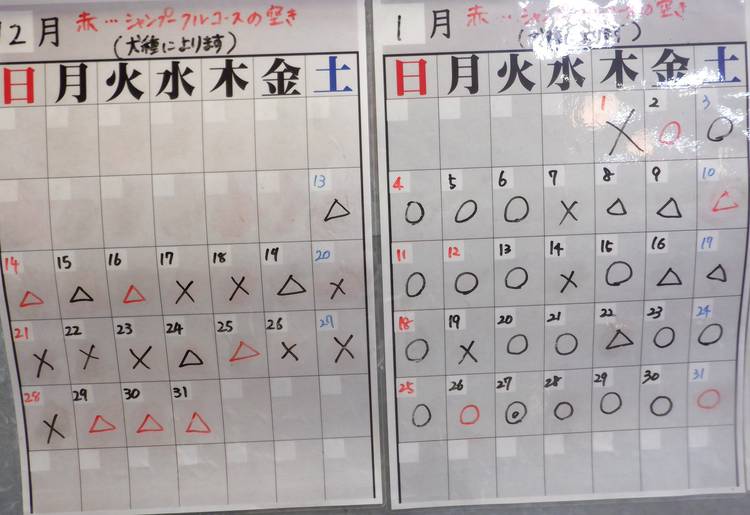 12月 赤…シャンプーフルコースの空き
(犬種によります)
日 月 火 水 木 金 土
13
△
14 15 16 17 18 19 20
△ △ △ × × △ ×
21 22 23 24 25 26 27
× × × △ △ × ×
28 29 30 31
× △ △ △
1月 赤…シャンプーフルコースの空き
(犬種によります)
日 月 火 水 木 金 土
1 2 3
× ○ ○
4 5 6 7 8 9 10
○ ○ ○ × △ △ △
11 12 13 14 15 16 17
○ ○ ○ × ○ △ △
18 19 20 21 22 23 24
○ × ○ ○ △ ○ ○
25 26 27 28 29 30 31
○ ○ ◎ ○ ○ ○ ○